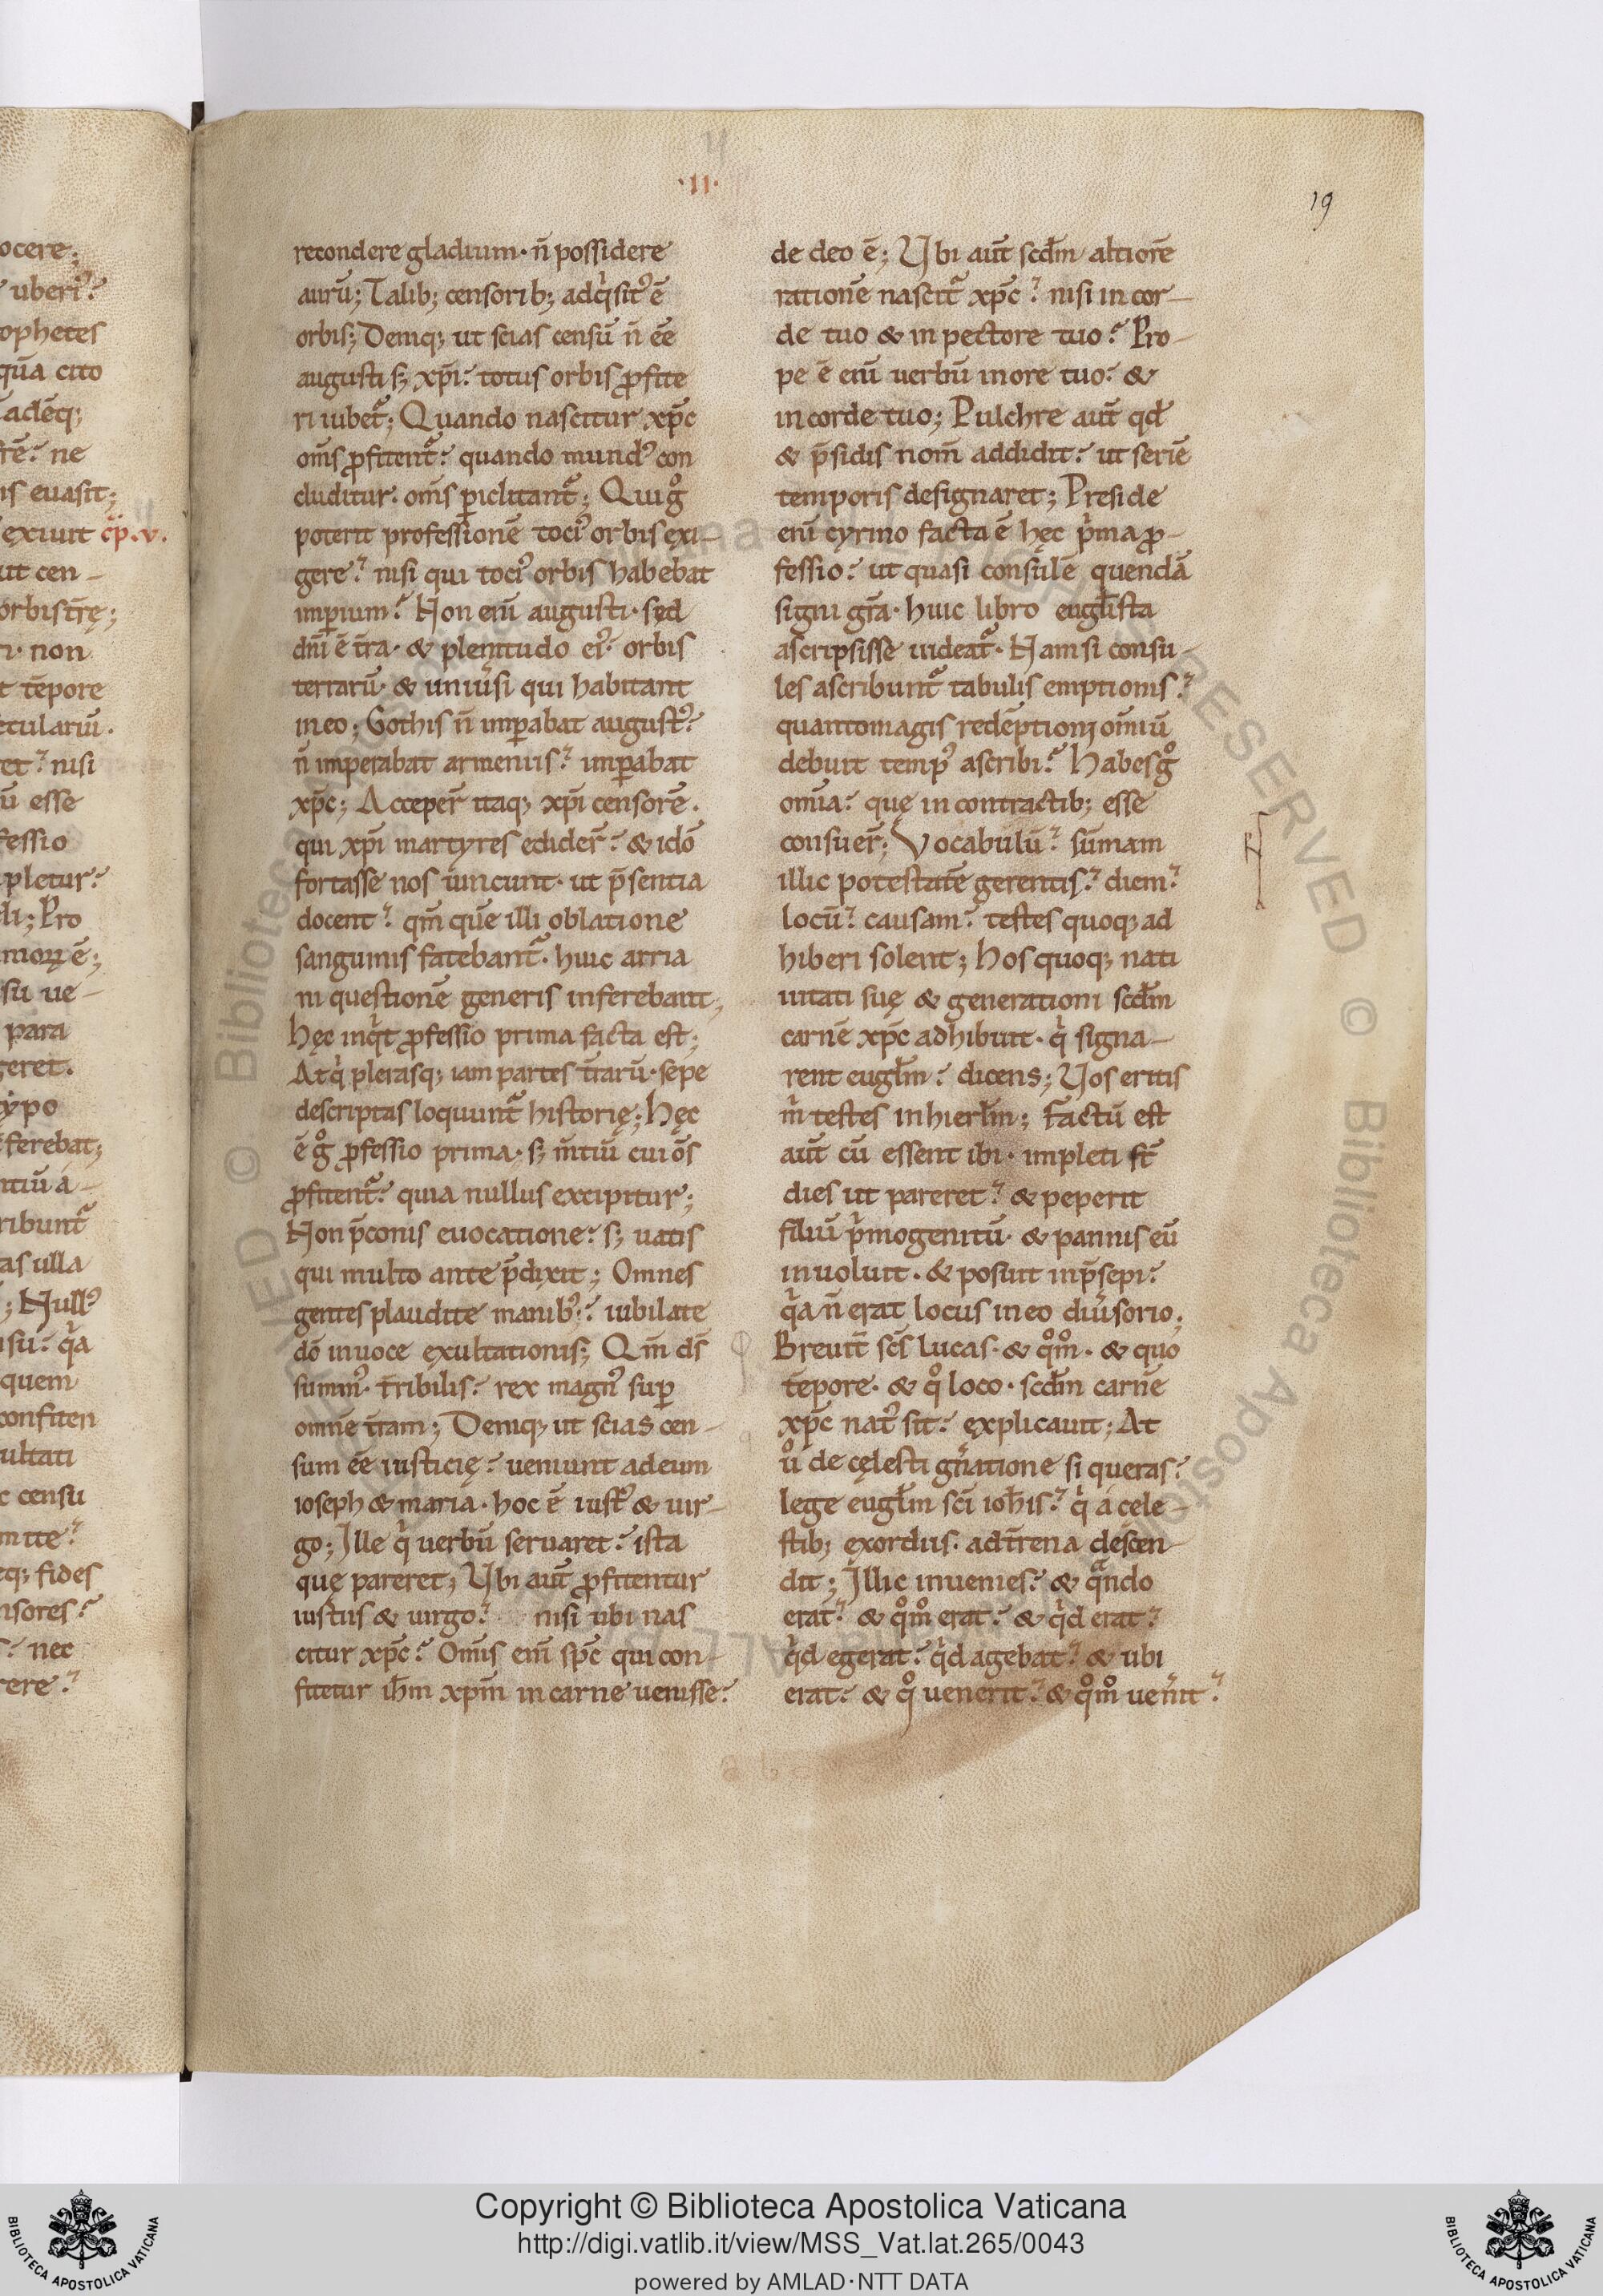 ·II·
19
ocere;
uberi᾽?
ophetes
quā cito
adeq;
ne
is euasit;
exiuit c̄p.v.
ut cen-
orbis tr̄ę;
non
t tēpore
eculariū.
et? nisi
ū esse
fessio
pletur?
di; Pro
ē;
su ue-
para
geret.
typo
ferebat;
ntiū a-
ribunt᷑
as illa
; Null᾽
su? qͥa
quem
confiten
ultati
c censu
mitte?
eq; fides
nsores?
? nec
rere?
recondere gladium· n̄ possidere
aurū; Talib; censorib; adqͥsit᾽ ē
orbis; Deniq; ut scias censū n̄ ēe
augusti s; xp̄i? totus orbis ꝓfite
ri iubet᷑; Quando nascitur xp̄c
om̄s ꝓfitent᷑? quando mund᾽ con
cluditur. om̄s ꝑiclitant᷑; Qui gͦ
poterit professionē toci᾽ orbis exi-
gere? nisi qui toci᾽ orbis habebat
imꝑium? Non eni᷑ augusti· sed
dn̄i ē tr̄a· & plenitudo ei᾽? orbis
terrarū· & uniūsi qui habitant
in eo; Gothis n̄ imꝑabat august᾽?
n̄ imperabat armeniis? imꝑabat
xp̄c; Acceper̄ itaq; xp̄i censorē.
qui xp̄i martyres edider̄? & idō
fortasse nos uincunt· ut p̄sentia
docent? qm̄ quē illi oblatione
sanguinis fatebant᷑· huic arria
ni questionē generis inferebant;
Hęc inqͥt ꝓfessio prima facta est;
Atqͥ plerasq; iam partes tr̄arū· sepe
descriptas loquunt᷑ historię; Hęc
ē gͦ ꝓfessio prima· s; m̄tiū cui ōs
ꝓfitent᷑? quia nullus excipitur;
Non p̄conis euocatione? s; uatis
qui multo ante p̄dixit; Omnes
gentes plaudite manib᾽? iubilate
dō in uoce exultationis; Qm̄ ds̄
summ᾽· tr̄ribilis? rex magn᾽ suꝑ
omnē tr̄am; Deniq; ut scias cen-
sum ēe iusticię? ueniunt ad eum
ioseph & maria· hoc ē iust᾽ & uir-
go; Ille qͥ uerbū seruaret? ista
quę pareret; Ubi aut̄ ꝓfitentur
iustus & uirgo? nisi ubi nas
citur xp̄c? Omīs eni᷑ sp̄c qui con-
fitetur ih̄m xp̄m in carne uenisse?
de deo ē; Ubi aut̄ scd̄m altiorē
rationē nascit᷑ xp̄c? nisi in cor-
de tuo & in pectore tuo? Pro-
pe ē eni᷑ uerbū in ore tuo? &
in corde tuo; Pulchre aut̄ qd̄
& p̄sidis nom̄ addidit? ut seriē
temporis designaret; Preside
eni᷑ cyrino facta ē hęc pͥma ꝓ-
fessio? ut quasi consulē quendā
signi gr̄a· huic libro eugl̄ista
ascripsisse uideat᷑· Nam si consu-
les ascribunt᷑ tabulis emptionis?
quanto magis redēptioni omīū
debuit temp᾽ ascribi? Habes gͦ
omīa? quę in contractib; esse
consuer̄; Vocabulū? sum̄am
illic potestatē gerentis? diem?
locū? causam? testes quoq; ad
hiberi solent; Hos quoq; nati
uitati suę & generationi scd̄m
carnē xp̄c adhibuit· qͥ signa-
rent eugl̄m? dicens; Uos eritis
m̄ testes in hierl̄m; Factū est
aut̄ cū essent ibi· impleti st̄
dies ut pareret? & peperit
filiū pͥmogenitū· & pannis eū
inuoluit· & posuit in p̄sepi?
qͥa n̄ erat locus in eo diūsorio;
Breuit̄ sc̄s lucas· & qͦmͦ· & quo
tēpore· & qͦ loco· scd̄m carnē
xp̄c nat᾽ sit? explicauit; At
uͦ de cęlesti gn̄atione si queras?
lege eugl̄m sc̄i ioh̄is? qͥ a cęle-
stib; exordiis· ad tr̄rena descen-
dit; Illic inuenies? & qᷓndo
erat? & qͦmͦ erat? & qͥd erat?
qͥd egerat? qͥd agebat? & ubi
erat? & qͦ uenerit? & qͦmͦ uen̄it?
Copyright © Biblioteca Apostolica Vaticana
http://digi.vatlib.it/view/MSS_Vat.lat.265/0043
powered by AMLAD·NTT DATA
BIBLIOTECA APOSTOLICA VATICANA
BIBLIOTECA APOSTOLICA VATICANA